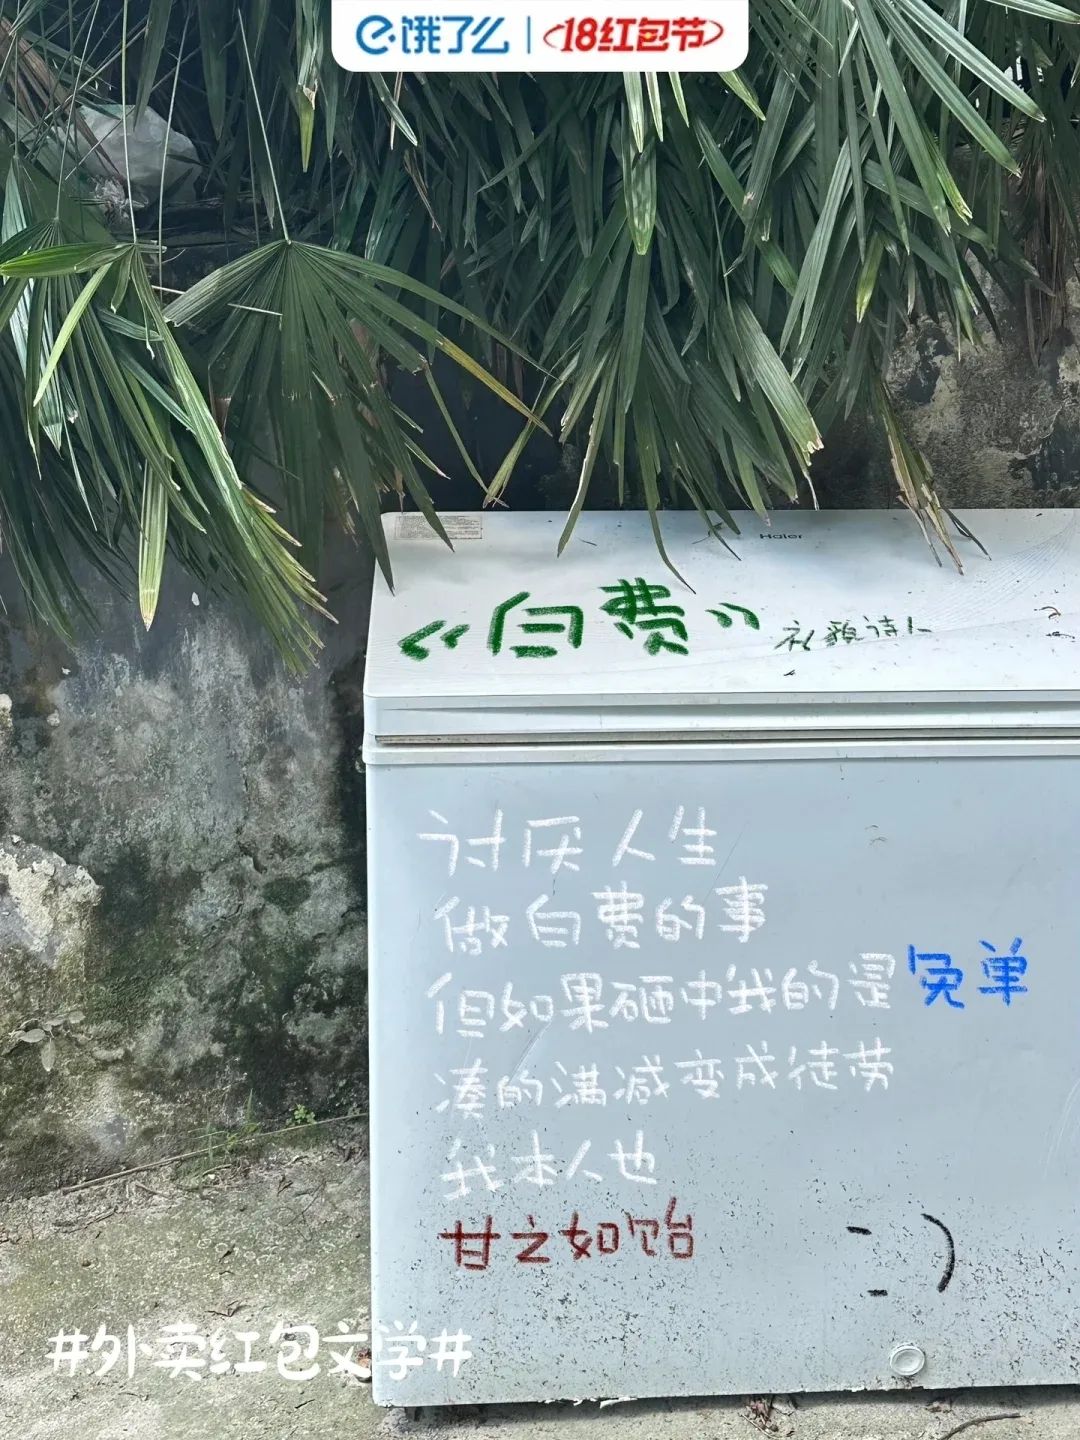 饿了么 | 18红包节
Haier
《白费》 衤颓诗人
讨厌人生
做白费的事
但如果砸中我的是免单
凑的满减变成徒劳
我本人也
甘之如饴
:)
#外卖红包文学#